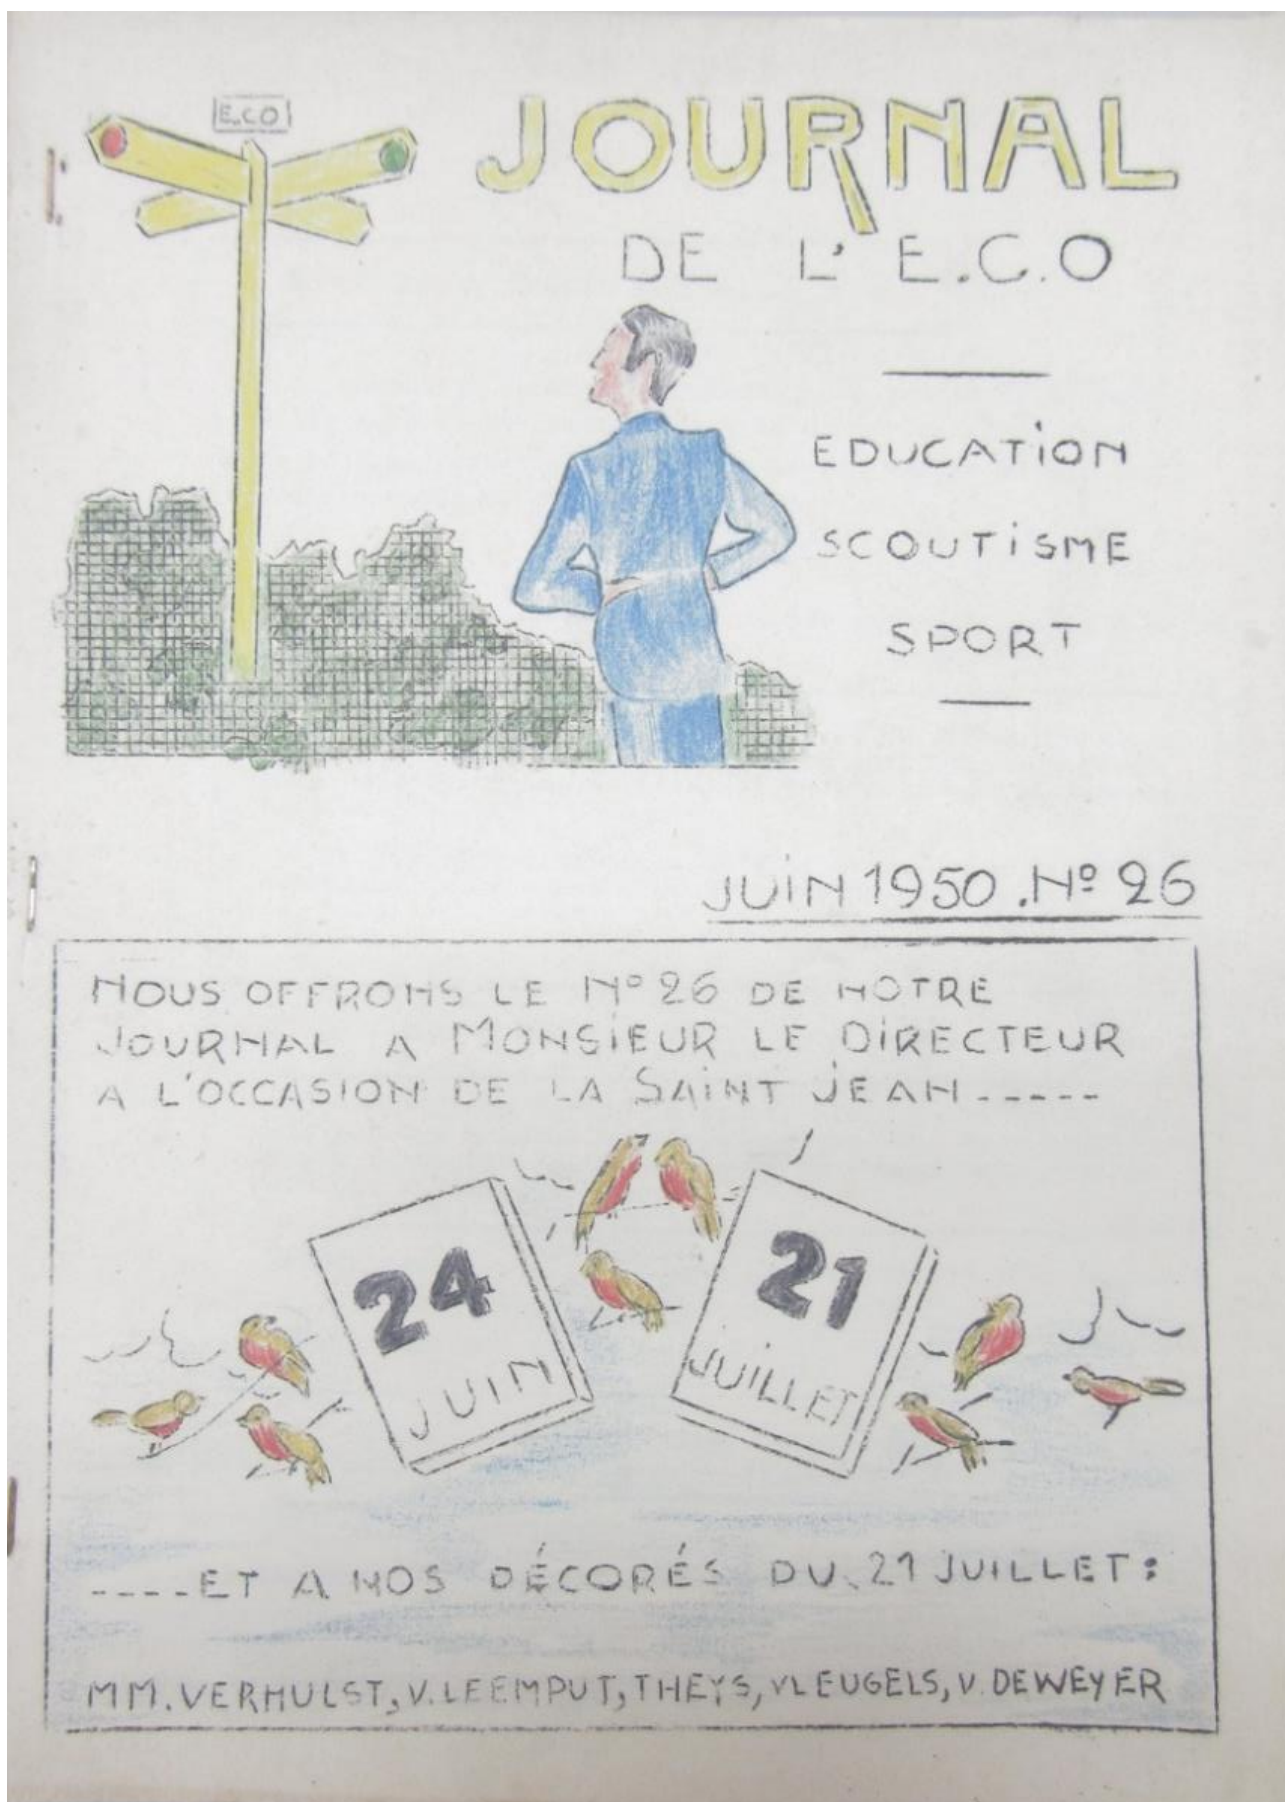 E.CO
JOURNAL
DE L'E.C.O
EDUCATION
SCOUTISME
SPORT
JUIN 1950. Nº 26
NOUS OFFRONS LE Nº 26 DE NOTRE
JOURNAL A MONSIEUR LE DIRECTEUR
A L'OCCASION DE LA SAINT JEAN-----
24
JUIN
21
JUILLET
----ET A NOS DÉCORÉS DU 21 JUILLET:
MM. VERHULST, V. LEEMPUT, THEYS, VLEUGELS, V. DEWEYER